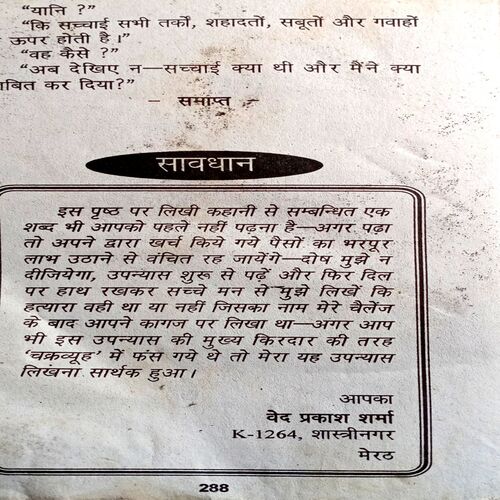 “यानि ?”
“कि सच्चाई सभी तर्कों, शहादतों, सबूतों और गवाहों
ऊपर होती है।”
“वह कैसे ?”
“अब देखिए न—सच्चाई क्या थी और मैंने क्या
ाबित कर दिया?”
– समाप्त –
सावधान
इस पृष्ठ पर लिखी कहानी से सम्बन्धित एक
शब्द भी आपको पहले नहीं पढ़ना है—अगर पढ़ा
तो अपने द्वारा खर्च किये गये पैसों का भरपूर
लाभ उठाने से वंचित रह जायेंगे—दोष मुझे न
दीजियेगा, उपन्यास शुरू से पढ़ें और फिर दिल
पर हाथ रखकर सच्चे मन से मुझे लिखें कि
हत्यारा वही था या नहीं जिसका नाम मेरे चैलेंज
के बाद आपने कागज पर लिखा था—अगर आप
भी इस उपन्यास की मुख्य किरदार की तरह
‘चक्रव्यूह’ में फंस गये थे तो मेरा यह उपन्यास
लिखना सार्थक हुआ।
आपका
वेद प्रकाश शर्मा
K-1264, शास्त्रीनगर
मेरठ
288